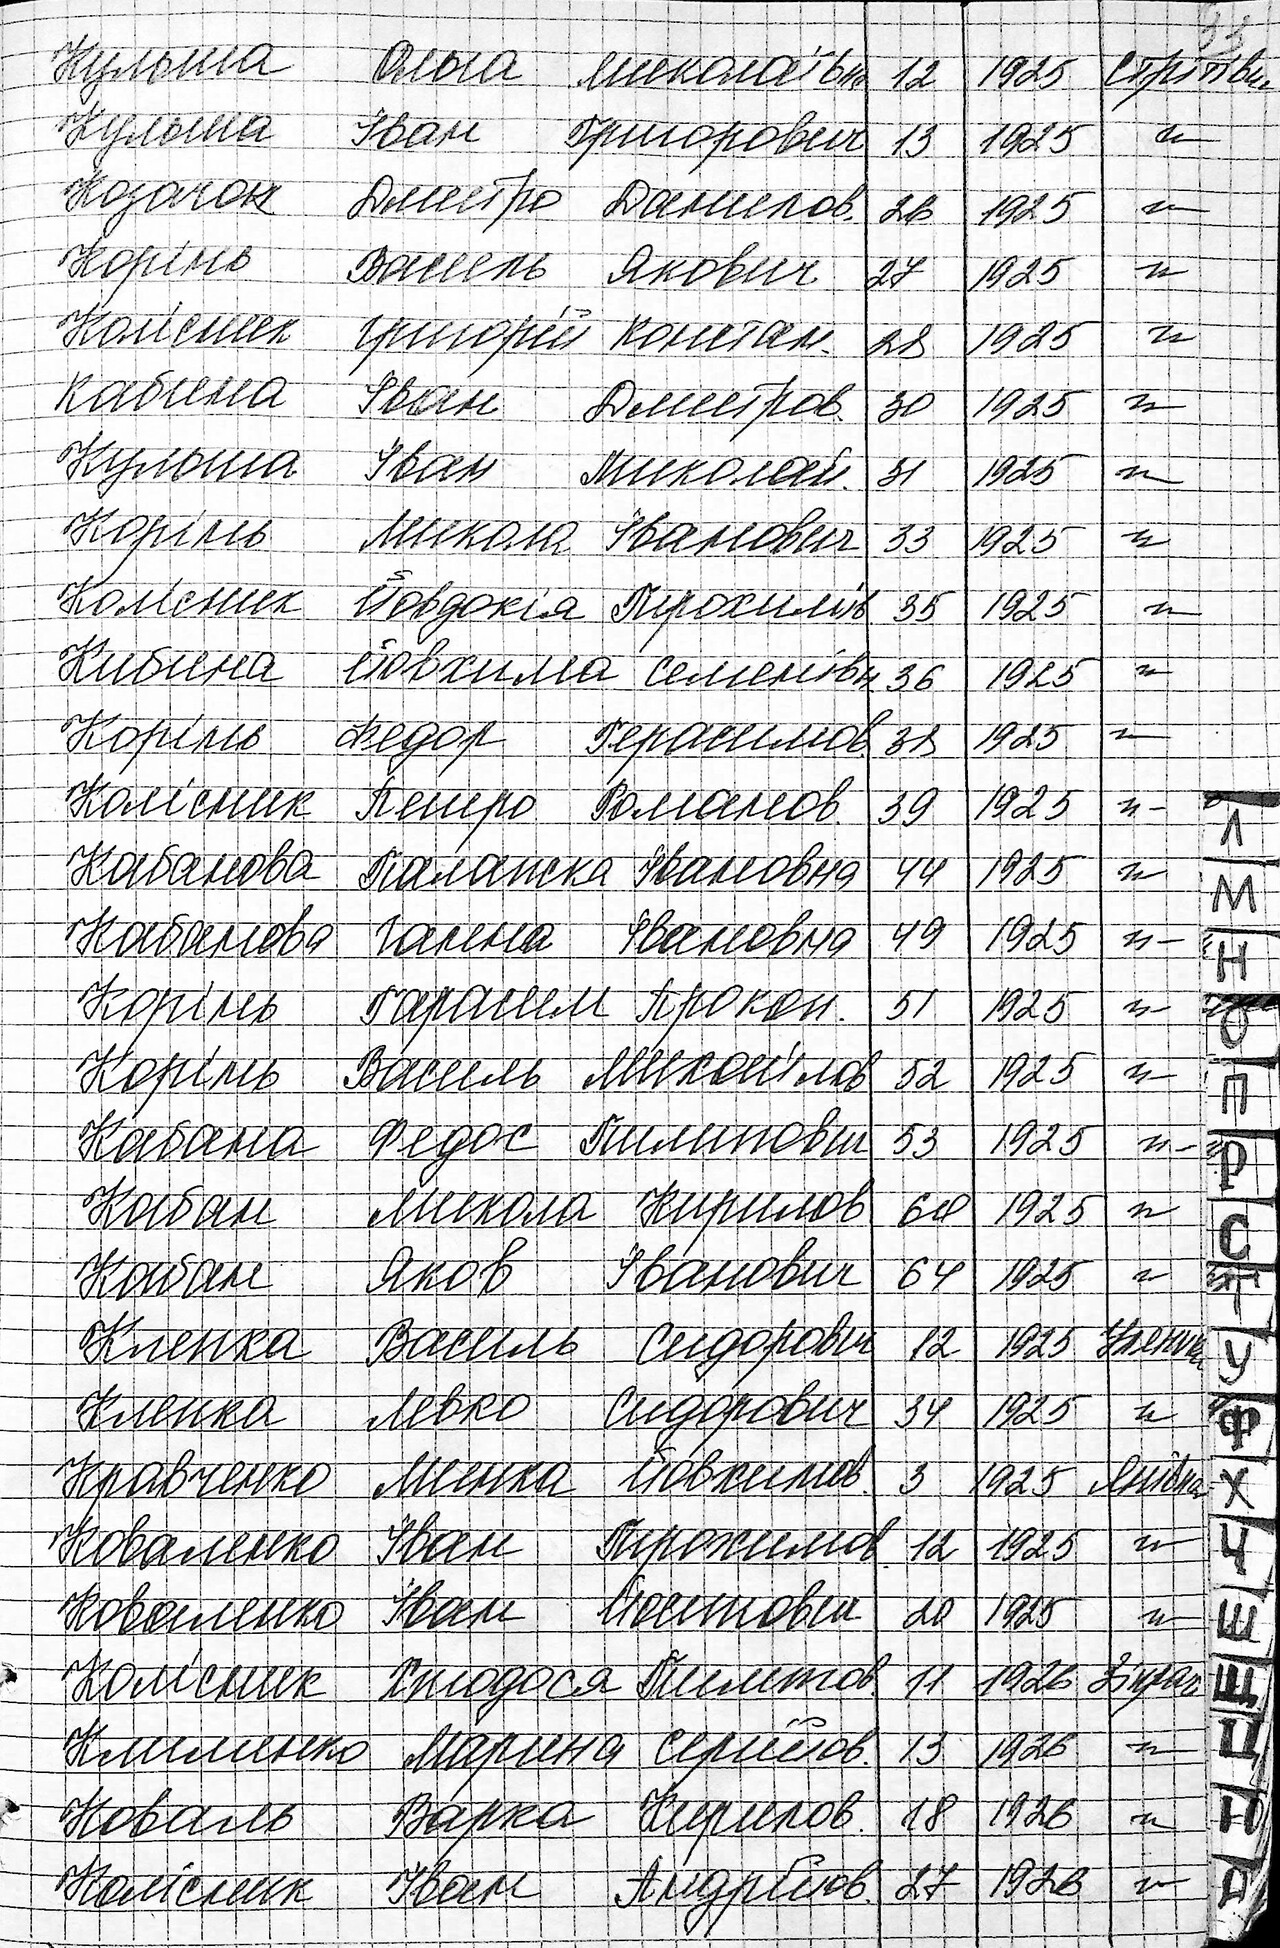 Кульша Ольга Миколаївн 12 1925
Кульша Іван Григорович 13 1925 —"—
Козачок Дмитро Данилов. 26 1925 —"—
Корінь Василь Якович 27 1925 —"—
Колісник Григорій Констан. 28 1925 —"—
Кабина Іван Дмитров. 30 1925 —"—
Кульша Іван Миколай. 31 1925 —"—
Корінь Микола Іванович 33 1925 —"—
Колісник Йовдокія Пирохимів 35 1925 —"—
Кибина Йовхима Семенівн 36 1925 —"—
Корінь Федор Герасимов. 38 1925 —"—
Колісник Петро Романов. 39 1925 —"—
Л
Кабанова Палажка Івановна 44 1925 —"—
М
Кабанова Галина Івановна 49 1925 —"—
Н
Корінь Гарасим Прокоп. 51 1925 —"—
О
Корінь Василь Михайлов 52 1925 —"—
П
Кабана Федос Пилипович 53 1925 —"—
Р
Кабан Микола Кирилов 60 1925 —"—
С
Кабан Яков Іванович 64 1925 —"—
Т
Кленка Василь Сидорович 12 1925
У
Кленка Левко Сидорович 34 1925 —"—
Ф
Кравченко Минка Йовхимов. 3 1925
Х
Коваленко Іван Пирохимов. 12 1925 —"—
Ч
Коваленко Іван Йосипович 20 1925 —"—
Ш
Колісник Хкгодося Пилипов. 11 1926
Щ
Клименко Марина Сергійов. 13 1926 —"—
Ц
Коваль Варка Кирилов. 18 1926 —"—
Ю
Колісник Іван Андрійов. 27 1926 —"—
Я